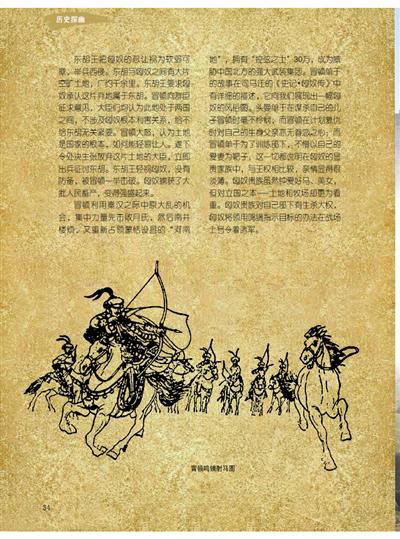 历史探幽
东胡王把匈奴的忍让视为软弱可
意，举兵西侵。东胡与匈奴之间有大片
空旷土地，广约千余里。东胡王要求匈
奴承认这片弃地属于东胡。冒顿向群臣
征求意见，大臣们均认为此处于两国
之间，不涉及匈奴根本利害关系，给不
给东胡无关紧要。冒顿大怒，认为土地
是国家的根本，如何能轻易让人。遂下
令处决主张放弃这片土地的大臣，立即
出兵征讨东胡。东胡王轻视匈奴，没有
防备，被冒顿一举击破。匈奴掳获了大
批人民畜产，变得强盛起来。
冒顿利用秦汉之际中原大乱的机
会，集中力量先击败月氏，然后南并
楼烦，又重新占领蒙恬设县的“河南
地”，拥有“控弦之士”30万，成为威
胁中国北方的强大武装集团。冒顿单于
的故事在司马迁的《史记·匈奴传》中
有详细的描述，它向我们展现出一幅匈
奴的风俗图。头曼单于在谋杀自己的儿
子冒顿时毫不怜悯，而冒顿在计划复仇
时对自己的生身父亲亦无眷恋之心；而
冒顿单于为了训练部下，不惜以自己的
爱妻为靶子，这一切都说明在匈奴的显
贵家族中，与王权相比较，亲情显得很
淡薄。匈奴贵族虽然钟爱好马、美女，
但对立国之本—土地和牧场却更为看
重。匈奴贵族对自己部下有生杀大权，
匈奴将领用鸣镝指示目标的办法在战场
上号令着诸军。
冒顿鸣镝射马图
34